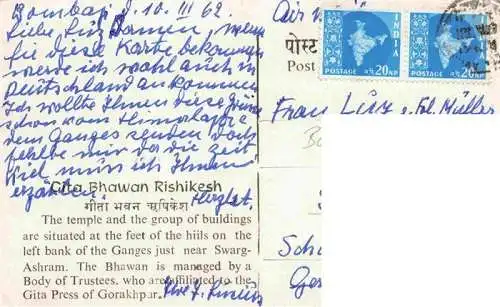 Bombay d. 10. III 62
Liebe Damen, wenn
Sie diese Karte bekommen
werde ich wohl auch in
Deutschland ankommen
Ich wollte Ihnen diese Grüße
schon vom Himalaya
dem Ganges senden doch
fehlte mir da die Zeit
Viel muss ich Ihnen
erzählen.
Herzlichst
Gita Bhawan Rishikesh
गीता भवन ऋषिकेश
The temple and the group of buildings
are situated at the feet of the hiils on the
left bank of the Ganges just near Swarg-
Ashram. The Bhawan is managed by a
Body of Trustees, who are affiliated to the
Gita Press of Gorakhpur.
Air
पोस्ट
Post
INDIA
POSTAGE 20 NP
POSTAGE 20 NP
Frau u. Frl. Müller